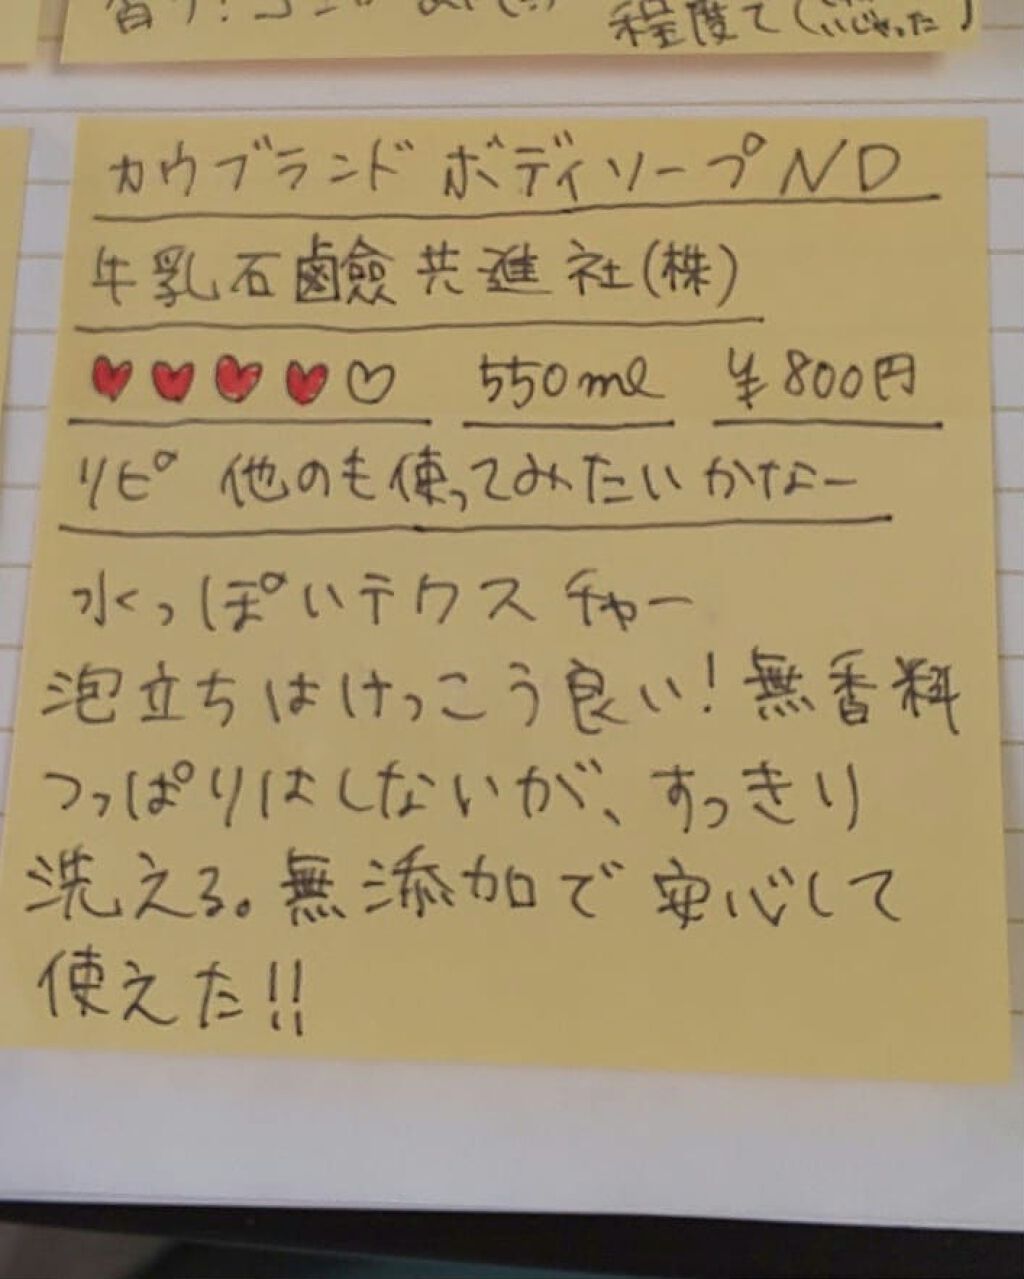 程度て(いじゃった)
カウブランド ボディソープND
牛乳石鹼共進社(株)
♥♥♥♥♡ 550ml ¥800円
リピ 他のも使ってみたいかなー
水っぽいテクスチャー
泡立ちはけっこう良い!無香料
つっぱりはしないが、すっきり
洗える。無添加で安心して
使えた!!